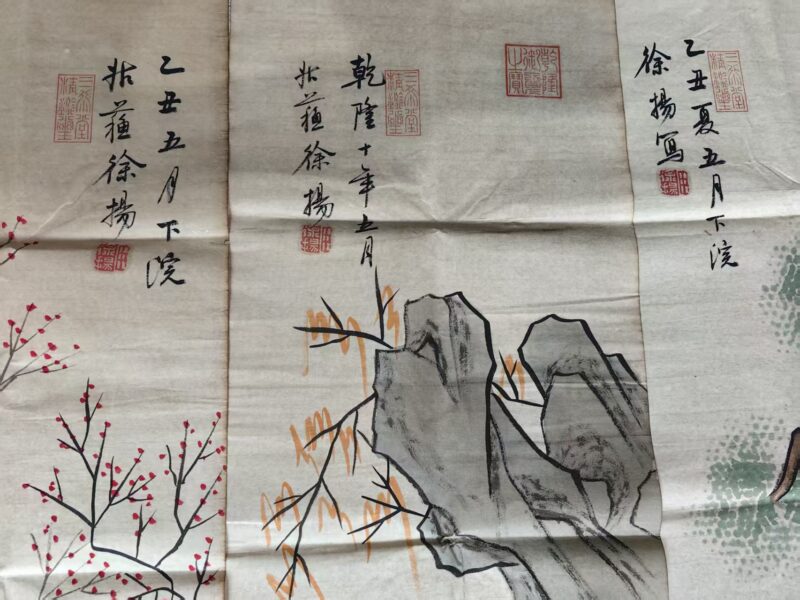 乙丑夏五月下浣
徐揚寫
三希堂
精鑑璽
乾隆
御覽
之寶
乾隆十年五月
姑蘓徐揚
三希堂
精鑑璽
乙丑五月下浣
姑蘓徐揚
三希堂
精鑑璽